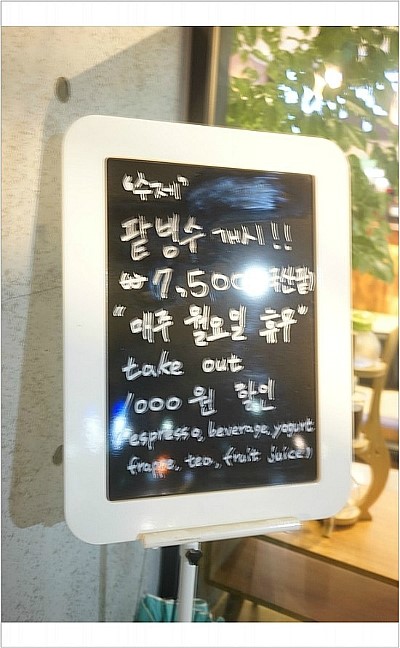 "수제"
팥빙수 개시!!
₩ 7,500 국산팥)
"매주 월요일 휴무"
take out
1000원 할인
espresso, beverage, yogurt
frappe, tea, fruit juice)